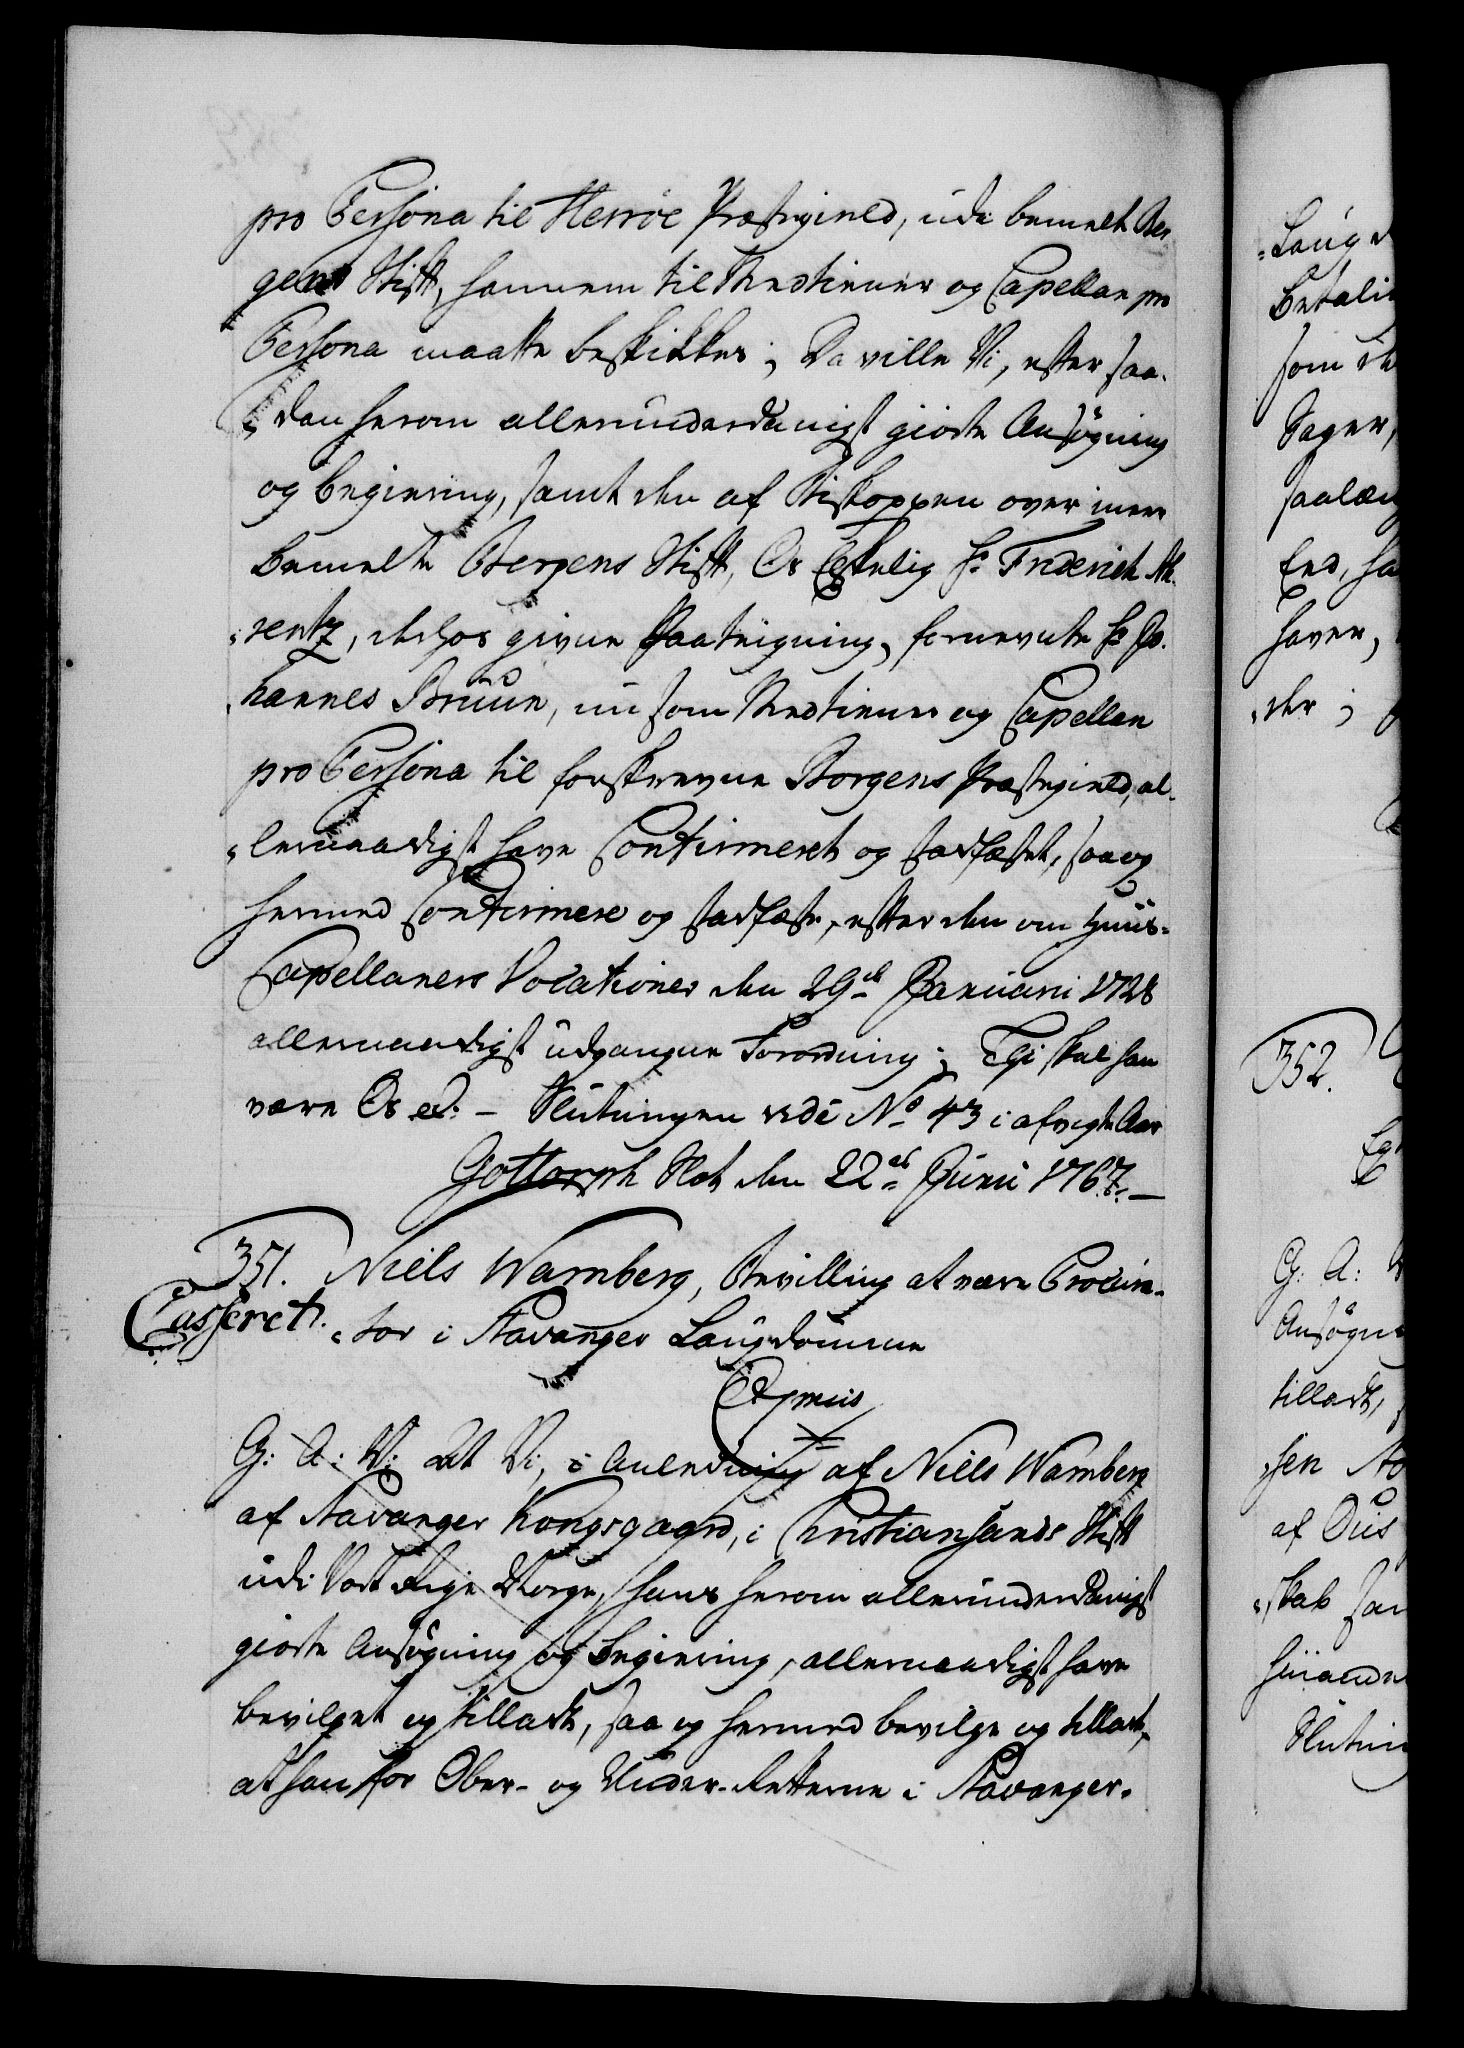 pro Persona til Herröe Præstegield, udi bemelt Ber
gens Stift, hannem til Medtiener og Capellan pro
Persona maatte beskikkes; Da ville Vi, efter saa-
dan herom allerunderdanigst giorte Ansøgning
og begiering, samt den af Biskoppen over meer
bemelte Bergens Stift, Os Elskelig Hr. Friderich Ah-
rentz, derhos givne Paategning, fornevnte Hr. Jo-
hannes Bruun, nu som Medtiener og Capellan
pro Persona til forskrevne Borgens Præstegield, al-
lernaadigst have Confirmeret og stadfæstet, saa og
hermed Confirmere og stadfæste, efter den om Huus-
Capellaners Vocationer den 29de Januarii 1728
allernaadigst udgangne Forordning; Thi skal han
være Os ec: - Slutningen vide No 43 i afvigte Aar
Gottorph Slot den 22de Junii 1767.
351. Niels Warnberg, Bevilling at være Procura-
Casseret. tor i Stavanger Laugdømme
G: A: V: At Vi, i Anledning af Niels Warnberg
af Stavanger Kongsgaard, i Christiansands Stift
udi Vort Rige Norge, hans herom allerunderdanigst
giorte Ansøgning og Begiering, allernaadigst have
bevilget og tilladt, saa og hermed bevilge og tillade,
at han for Ober- og Under-Retterne i Stavanger-
Laug
Betali
som
Sager,
haver,
der;
352.
G: A: V
Ansøgn
tilladt,
sen
af
skab
Slutni